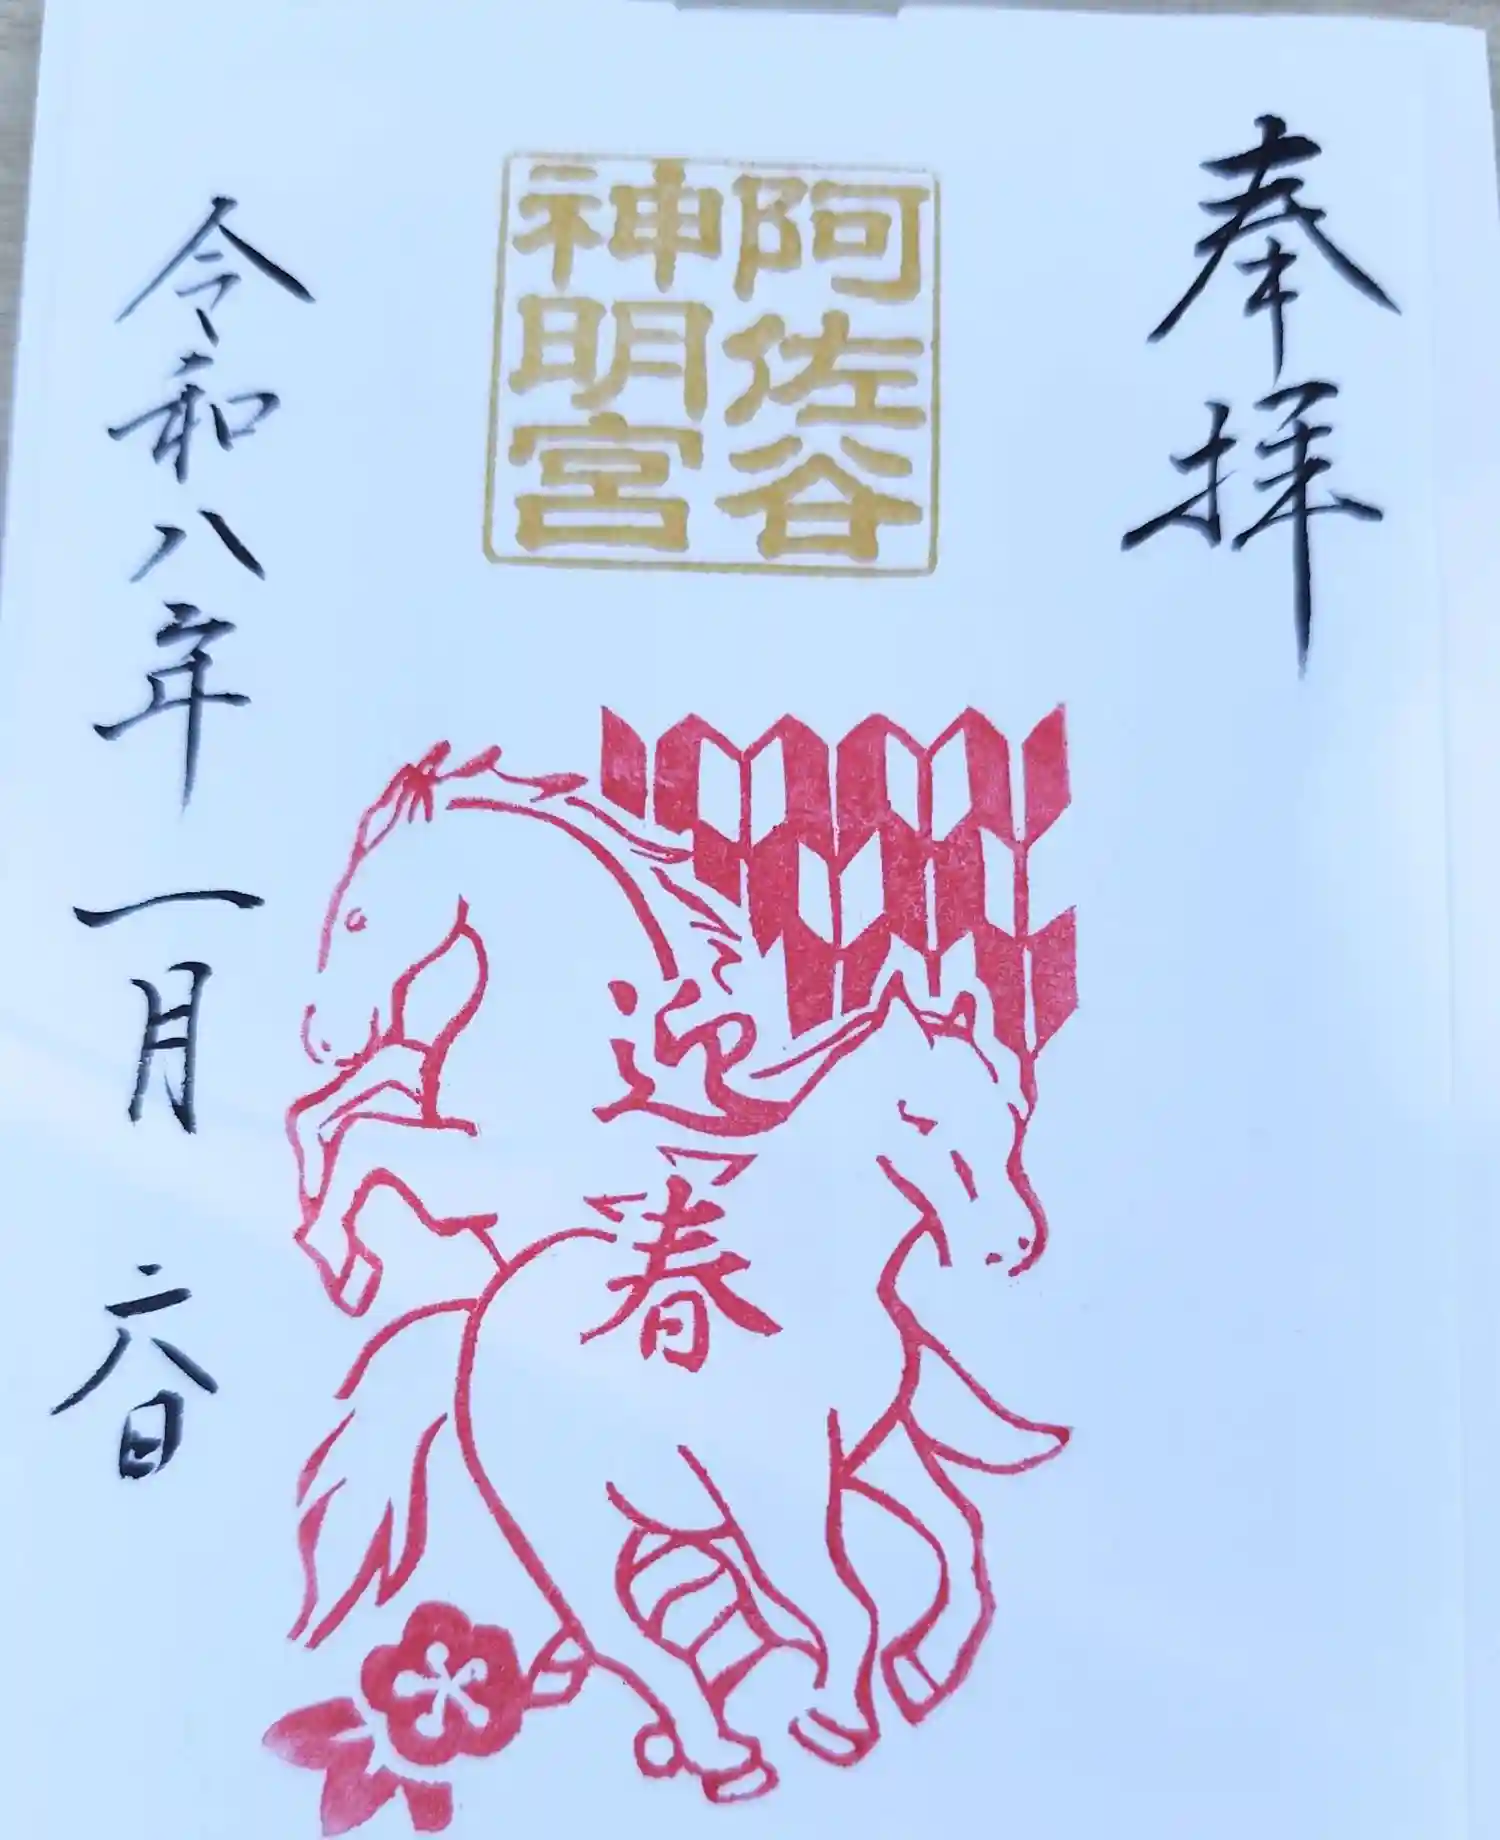 奉拝
阿佐谷
神明宮
迎春
令和八年 一月 二八日